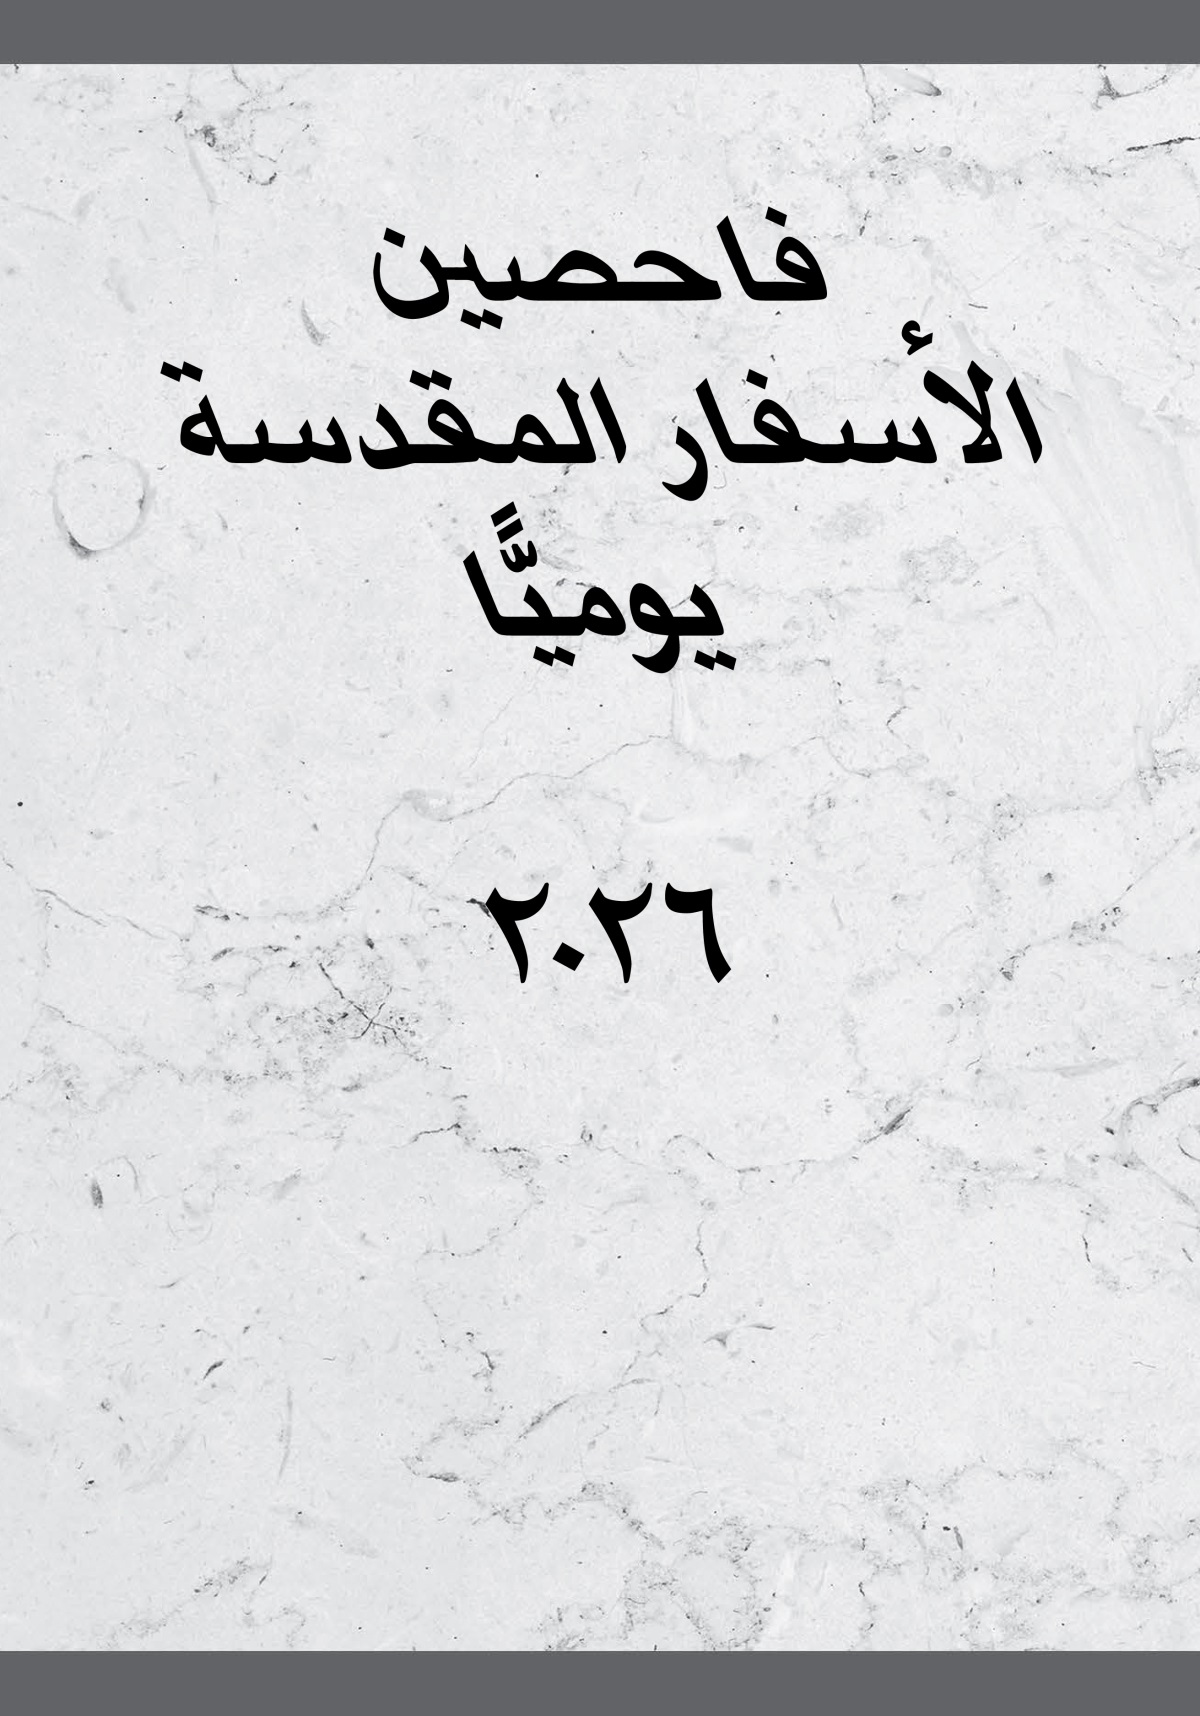 فاحصين
الأسفار المقدسة
يوميًّا
٢٠٢٦